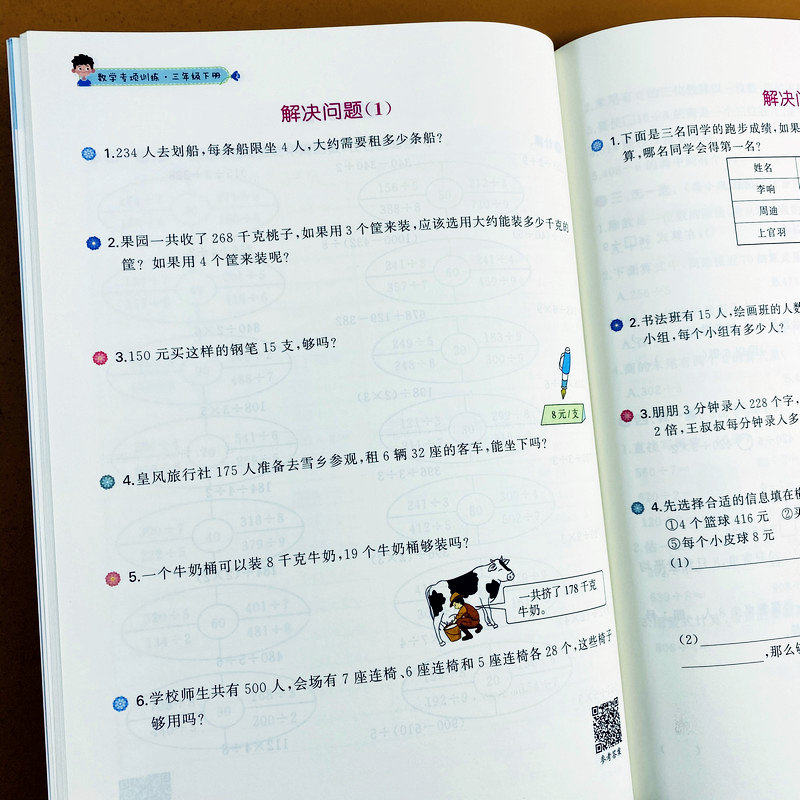 数学专项训练·三年级下册
解决问题(1)
1.234 人去划船,每条船限坐 4 人,大约需要租多少条船?
2.果园一共收了 268 千克桃子,如果用 3 个筐来装,应该选用大约能装多少千克的
筐? 如果用 4 个筐来装呢?
3.150 元买这样的钢笔 15 支,够吗?
8元/支
4.皇风旅行社 175 人准备去雪乡参观,租 6 辆 32 座的客车,能坐下吗?
5.一个牛奶桶可以装 8 千克牛奶,19 个牛奶桶够装吗?
一共挤了 178 千克
牛奶。
6.学校师生共有 500 人,会场有 7 座连椅、6 座连椅和 5 座连椅各 28 个,这些椅子
够用吗?
参考答案
解决
1.下面是三名同学的跑步成绩,如果
算,哪名同学会得第一名?
姓名
李响
周迪
上官羽
2.书法班有 15 人,绘画班的人数
小组,每个小组有多少人?
3.朋朋 3 分钟录入 228 个字,
2 倍,王叔叔每分钟录入多
4.先选择合适的信息填在横
①4 个篮球 416 元 ②买
⑤每个小皮球 8 元
(1)
(2)
,那么